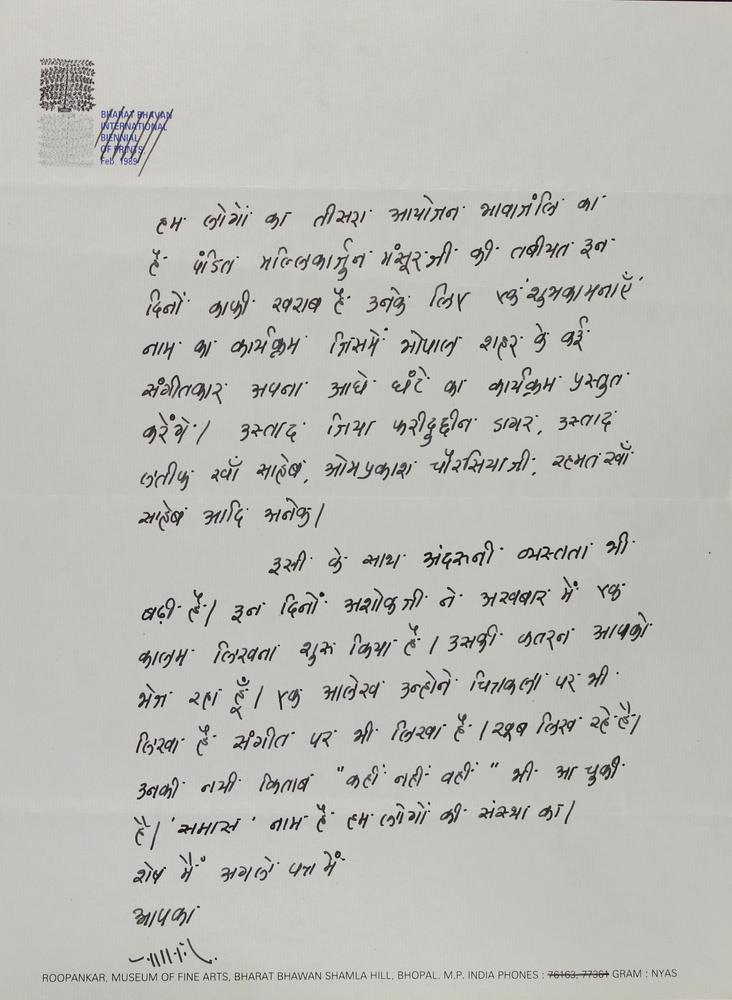 BHARAT BHAVAN
INTERNATIONAL
BIENNIAL
OF PRINTS
Feb. 1989
हम लोगों का तीसरा आयोजन भावांजलि का
है पंडित मल्लिकार्जुन मंसूर जी की तबीयत इन
दिनों काफी खराब है उनके लिए एक शुभकामनाएँ
नाम का कार्यक्रम जिसमें भोपाल शहर के कई
संगीतकार अपना आधे घंटे का कार्यक्रम प्रस्तुत
करेंगे। उस्ताद जिया फरीदुद्दीन डागर, उस्ताद
लतीफ खाँ साहेब, ओमप्रकाश चौरसिया जी, रहमत खाँ
साहेब आदि अनेक।
इसी के साथ अंदरूनी व्यस्तता भी
बढ़ी है। इन दिनों अशोक जी ने अखबार में एक
कालम लिखना शुरू किया है। उसकी कतरन आपको
भेज रहा हूँ। एक आलेख उन्होने चित्रकला पर भी
लिखा है संगीत पर भी लिखा है। खूब लिख रहे है।
उनकी नयी किताब "कहीं नहीं वहीं" भी आ चुकी
है। 'समास' नाम है हम लोगों की संस्था का।
शेष मैं अगले पत्र में
आपका
ROOPANKAR, MUSEUM OF FINE ARTS, BHARAT BHAWAN SHAMLA HILL, BHOPAL. M.P. INDIA PHONES : 76163, 77361 GRAM : NYAS